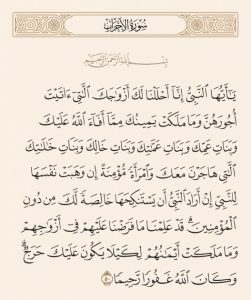 سُورَةُ الأَحْزَابِ
بِسْمِ اللَّهِ الرَّحْمَنِ الرَّحِيمِ
يَٰٓأَيُّهَا ٱلنَّبِىُّ إِنَّآ أَحْلَلْنَا لَكَ أَزْوَٰجَكَ ٱلَّٰتِىٓ ءَاتَيْتَ
أُجُورَهُنَّ وَمَا مَلَكَتْ يَمِينُكَ مِمَّآ أَفَآءَ ٱللَّهُ عَلَيْكَ
وَبَنَاتِ عَمِّكَ وَبَنَاتِ عَمَّٰتِكَ وَبَنَاتِ خَالِكَ وَبَنَاتِ خَٰلَٰتِكَ
ٱلَّٰتِى هَاجَرْنَ مَعَكَ وَٱمْرَأَةً مُّؤْمِنَةً إِن وَهَبَتْ نَفْسَهَا
لِلنَّبِىِّ إِنْ أَرَادَ ٱلنَّبِىُّ أَن يَسْتَنكِحَهَا خَالِصَةً لَّكَ مِن دُونِ
ٱلْمُؤْمِنِينَ ۗ قَدْ عَلِمْنَا مَا فَرَضْنَا عَلَيْهِمْ فِىٓ أَزْوَٰجِهِمْ
وَمَا مَلَكَتْ أَيْمَٰنُهُمْ لِكَيْلَا يَكُونَ عَلَيْكَ حَرَجٌ ۗ
وَكَانَ ٱللَّهُ غَفُورًا رَّحِيمًا ٥٠